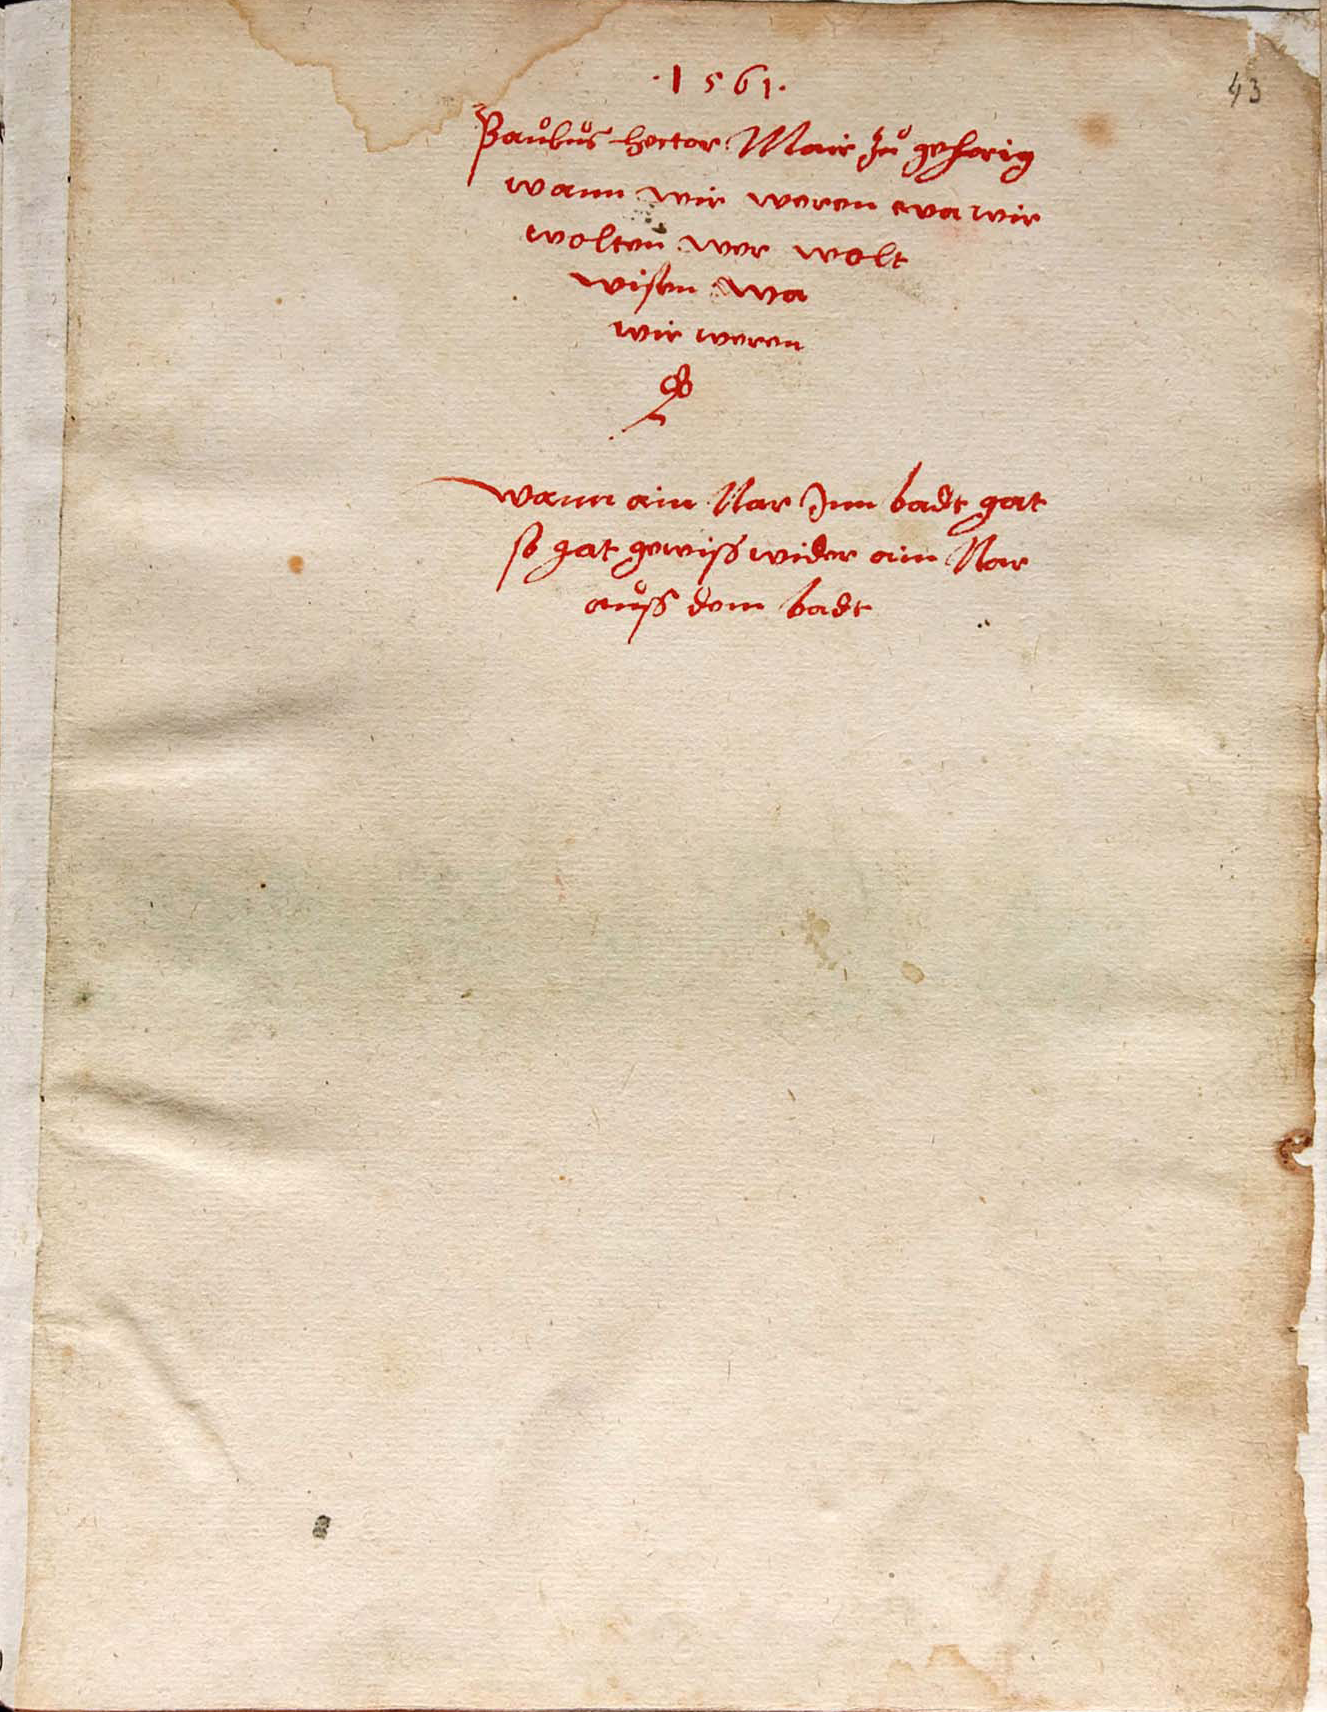 43
·1561·
Paůlůs hector Mair zů geherig
wann wir weren wa wir
wolten wer wolt
wisen wa
wir weren
wann ain Nar Jnn badt gat
so gat gewiss wider ain Nar
aůss dem badt